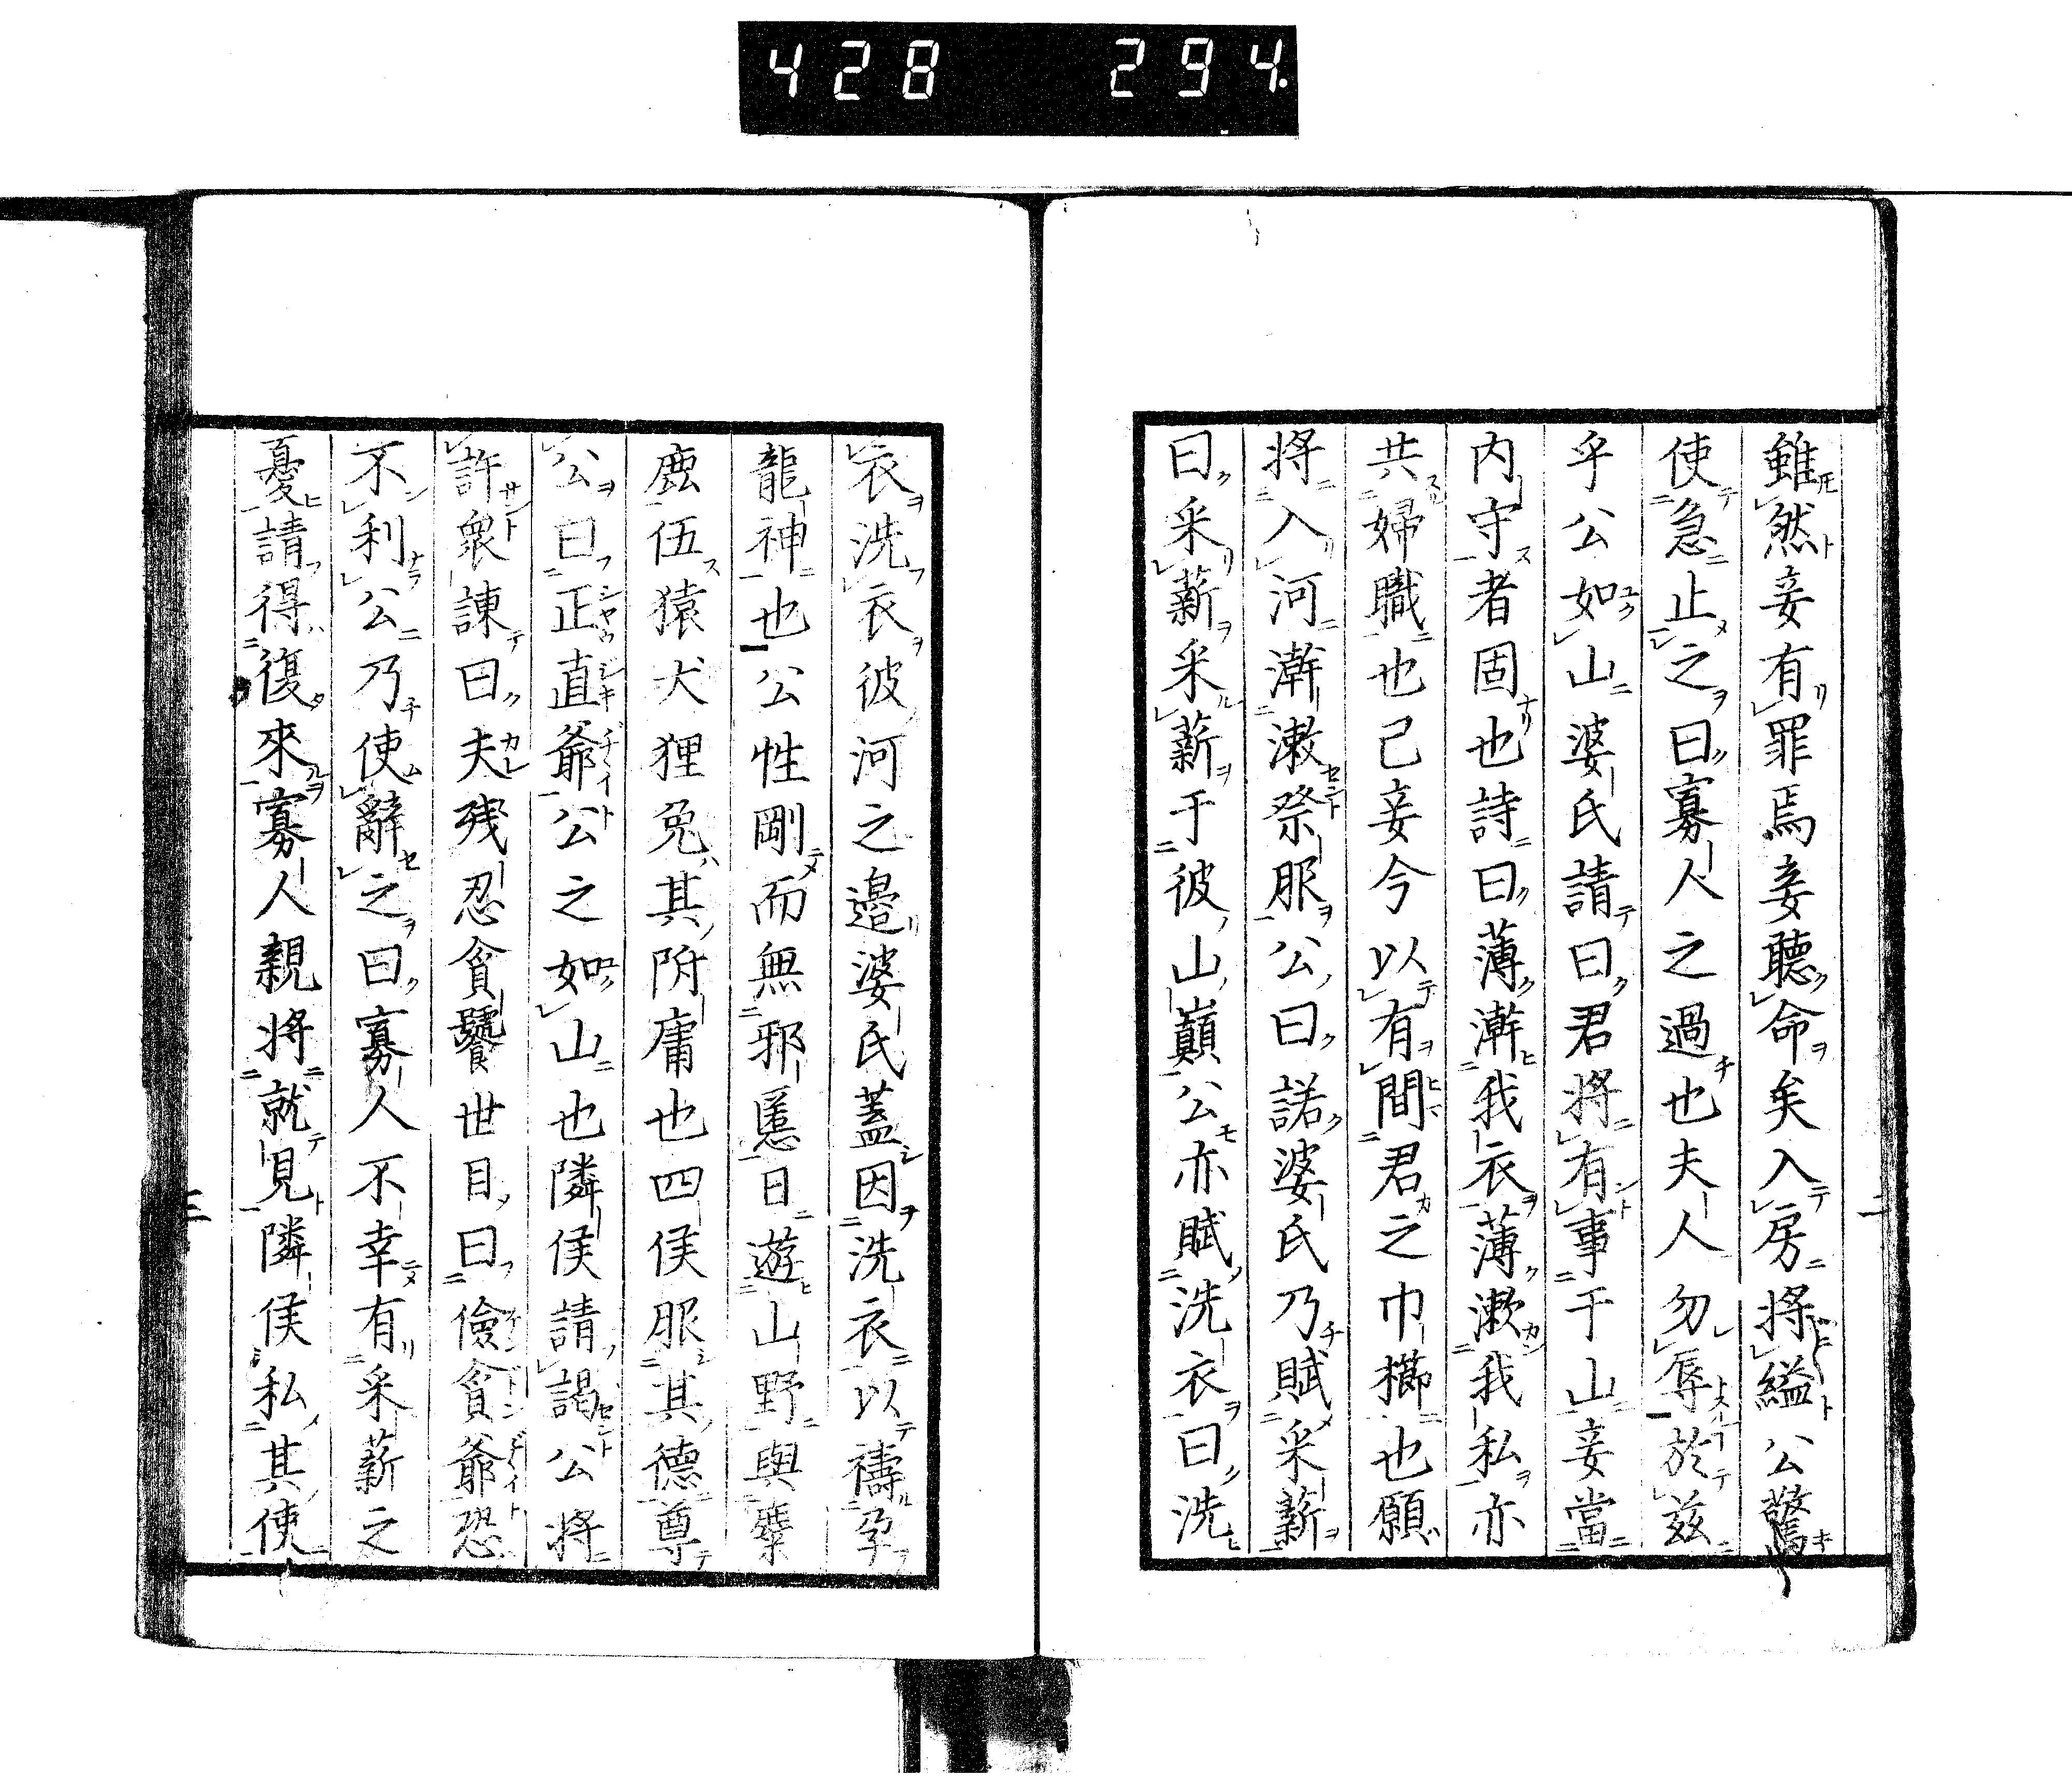 428 294.
雖然妾有罪焉妾聽命矣入房將縊公驚
使急止之曰寡人之過也夫人勿辱於兹
乎公如山婆氏請曰君將有事于山妾當
内守者固也詩曰薄澣我衣薄漱我私亦
共婦職也已妾今以有間君之巾櫛也願
將入河澣漱祭服公曰諾婆氏乃賦采薪
曰采薪采薪于彼山巓公亦賦洗衣曰洗
二
衣洗衣彼河之邉婆氏蓋因洗衣以禱孕
龍神也公性剛而無邪慝日遊山野與麋
鹿伍猿犬狸兔其附庸也四侯服其德尊
公曰正直爺公之如山也隣侯請謁公將
許衆諌曰夫残忍貪饕世目曰儉貪爺恐
不利公乃使辭之曰寡人不幸有采薪之
憂請得復來寡人親將就見隣侯私其使
三